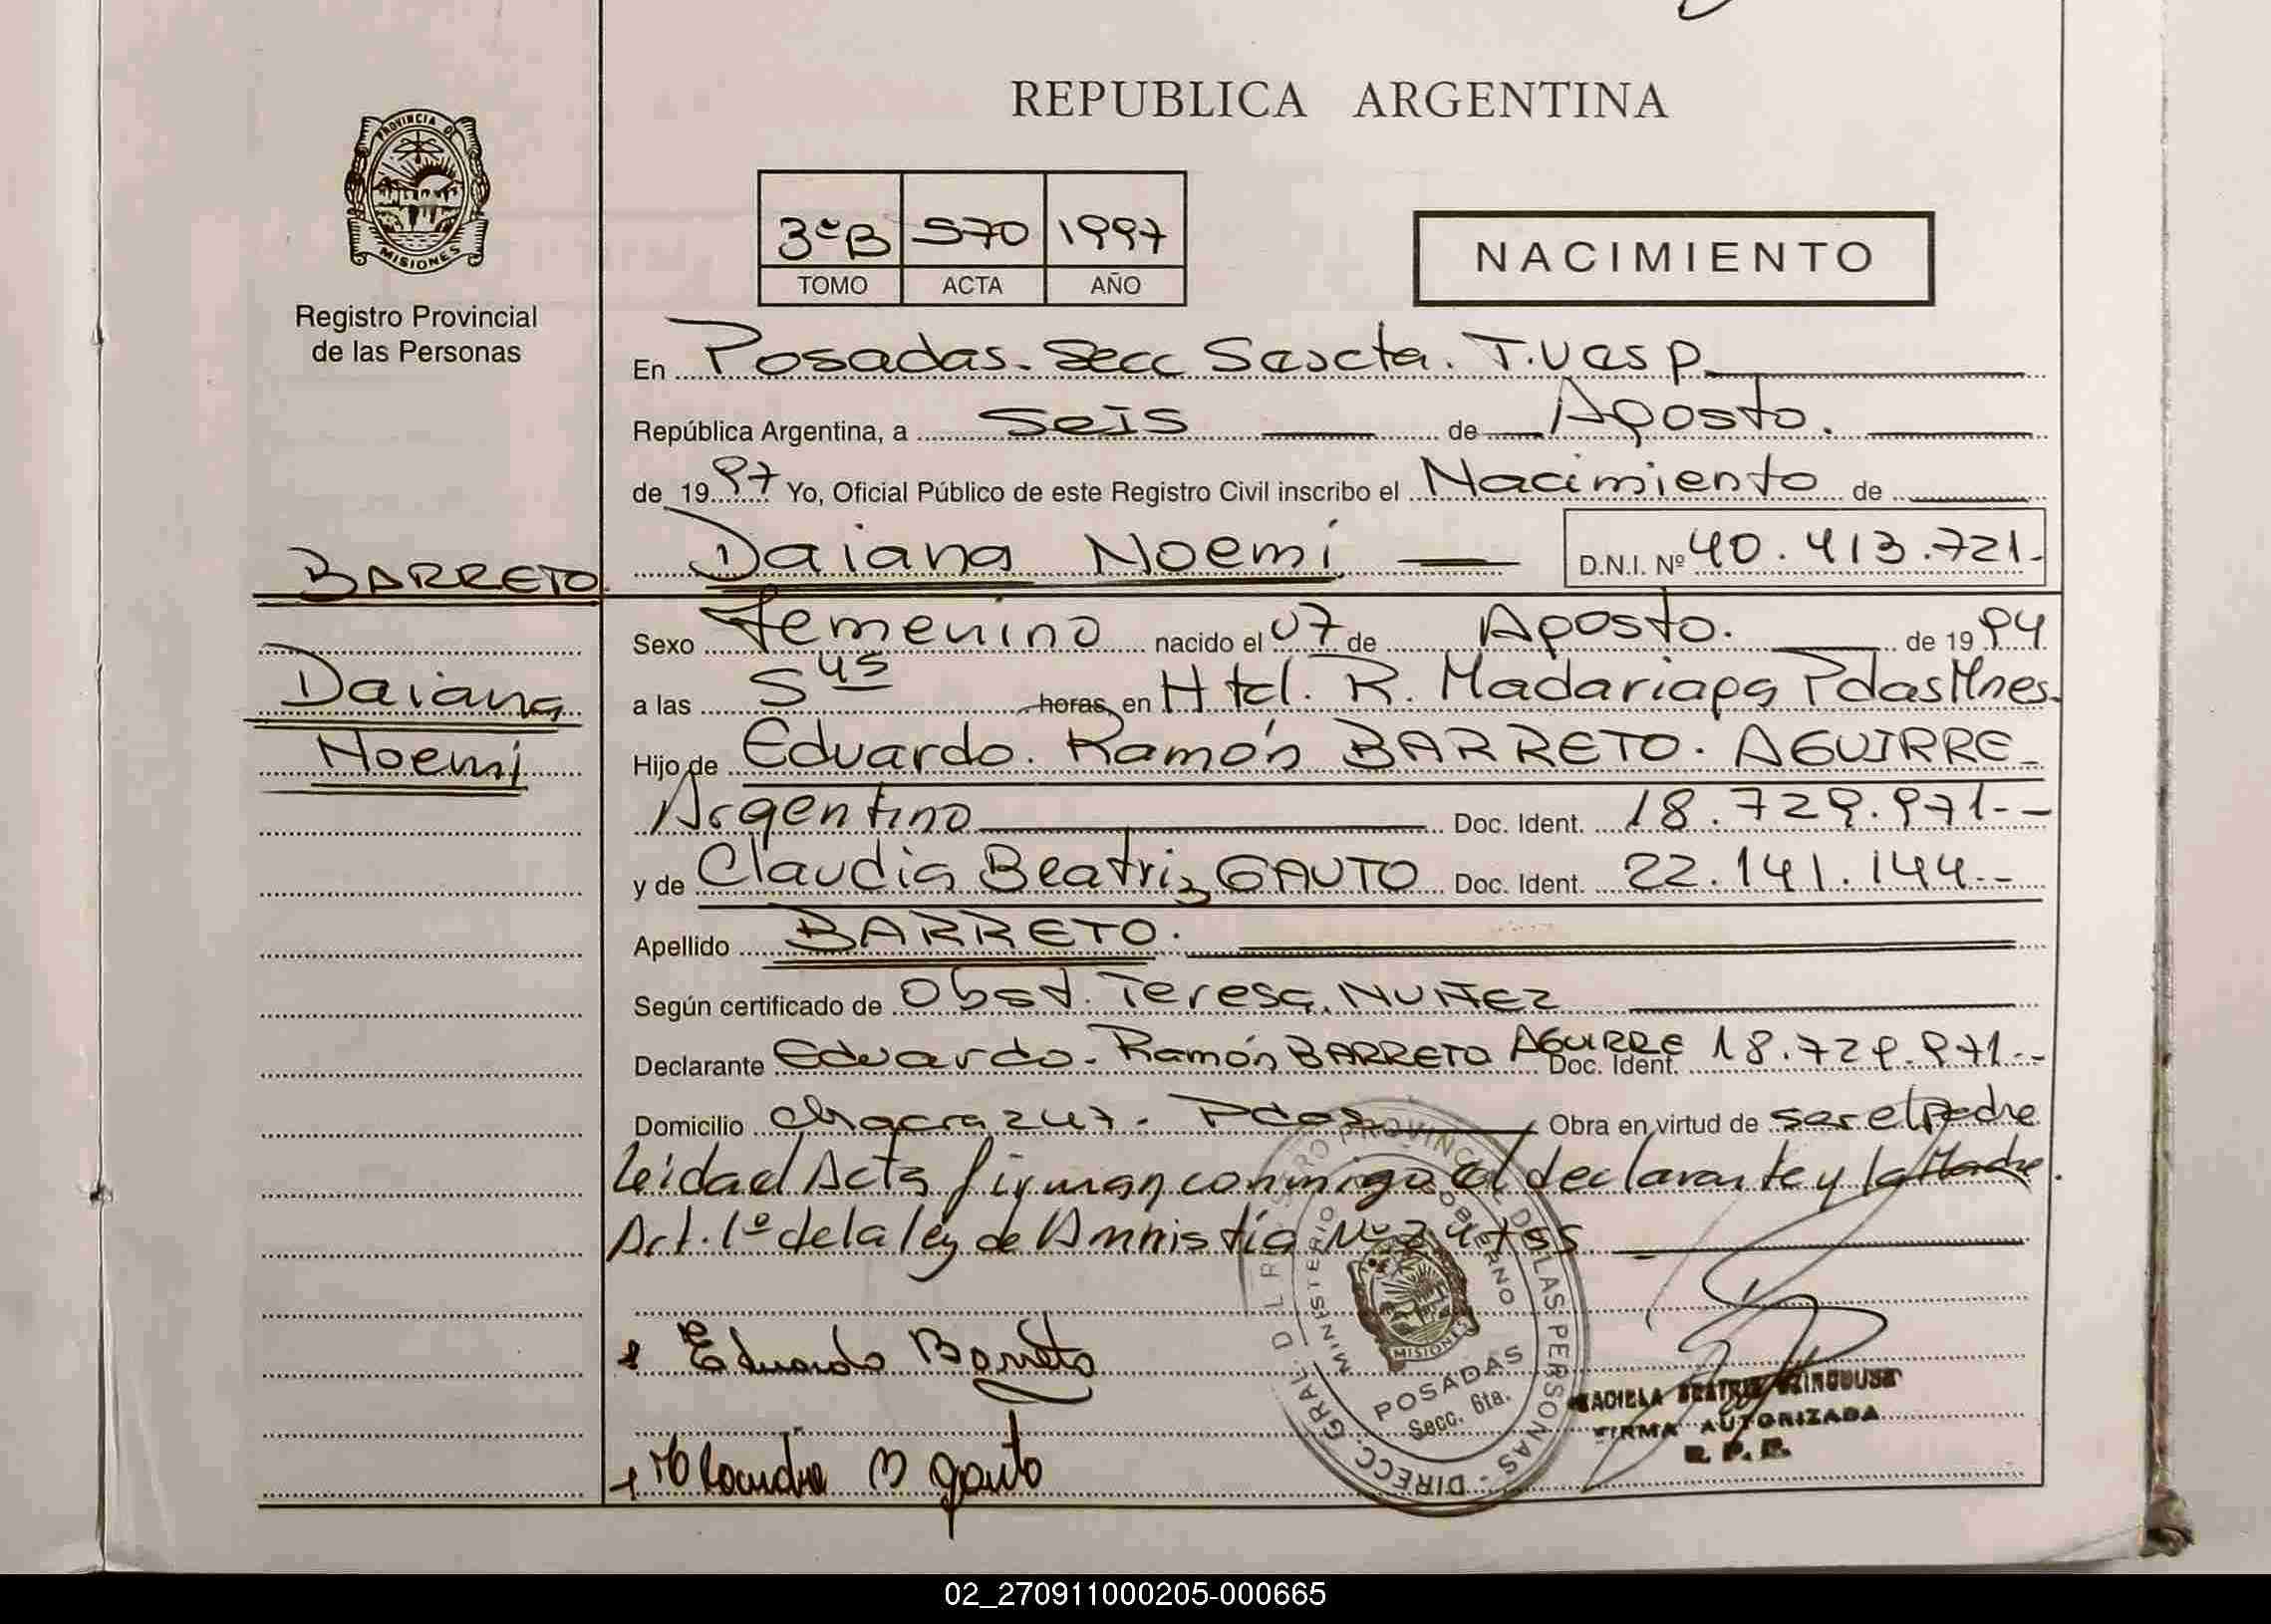 REPUBLICA ARGENTINA
PROVINCIA DE
MISIONES
Registro Provincial
de las Personas
3ºB 570 1997
TOMO ACTA AÑO
NACIMIENTO
En Posadas. Secc Sexta.
República Argentina, a Seis de Agosto.
de 1997 Yo, Oficial Público de este Registro Civil inscribo el Nacimiento de
BARRETO Daiana Noemi D.N.I. Nº 40.413.721.
Sexo Femenino nacido el 07 de Agosto. de 1994
Daiana
a las 5 45 horas, en Htal. R. Madariaga Pdas Mnes.
Noemi
Hijo de Eduardo. Ramón BARRETO. AGUIRRE
Argentino Doc. Ident. 18.729.971.--
y de Claudia Beatriz GAUTO Doc. Ident. 22.141.144.--
Apellido BARRETO.
Según certificado de Obst. Teresa. NUÑEZ
Declarante Eduardo. Ramón BARRETO AGUIRRE Doc. Ident. 18.729.971.--
Domicilio Chacra 247. Pdas Obra en virtud de ser el padre
leida el Acta firman conmigo el declarante y la Madre.
Art. 1º de la ley de Amnistía Nº
DIRECC. GRAL. DEL REGISTRO PROVINCIAL DE LAS PERSONAS
MINISTERIO GOBIERNO
MISIONES
POSADAS
Secc. 6ta.
Eduardo Barreto
BEATRIZ
FIRMA AUTORIZADA
R. P. P.
B Gauto
02_270911000205-000665